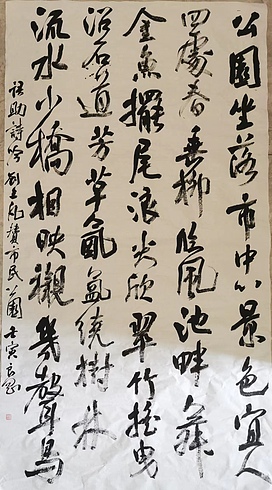 公園坐落市中心景色宜人
四處春垂柳臨風池畔舞
金魚擺尾浪尖欣翠竹搖曳
沿石道芳草氤氳繞樹林
流水小橋相映襯幾聲鳥
語助詩吟 贊市民公園 壬寅